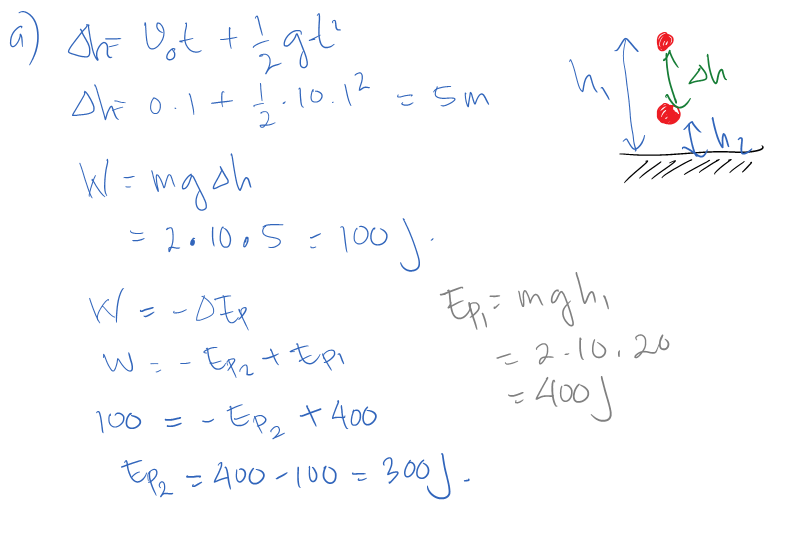 a) Δh = V₀t + 1/2 gt²
Δh = 0.1 + 1/2 . 10 . 1² = 5 m
h₁
Δh
h₂
W = mgΔh
= 2 . 10 . 5 = 100 J.
W = -ΔEp
W = - Ep₂ + Ep₁
100 = - Ep₂ + 400
Ep₂ = 400 - 100 = 300 J.
Ep₁ = mgh₁
= 2 . 10 . 20
= 400 J